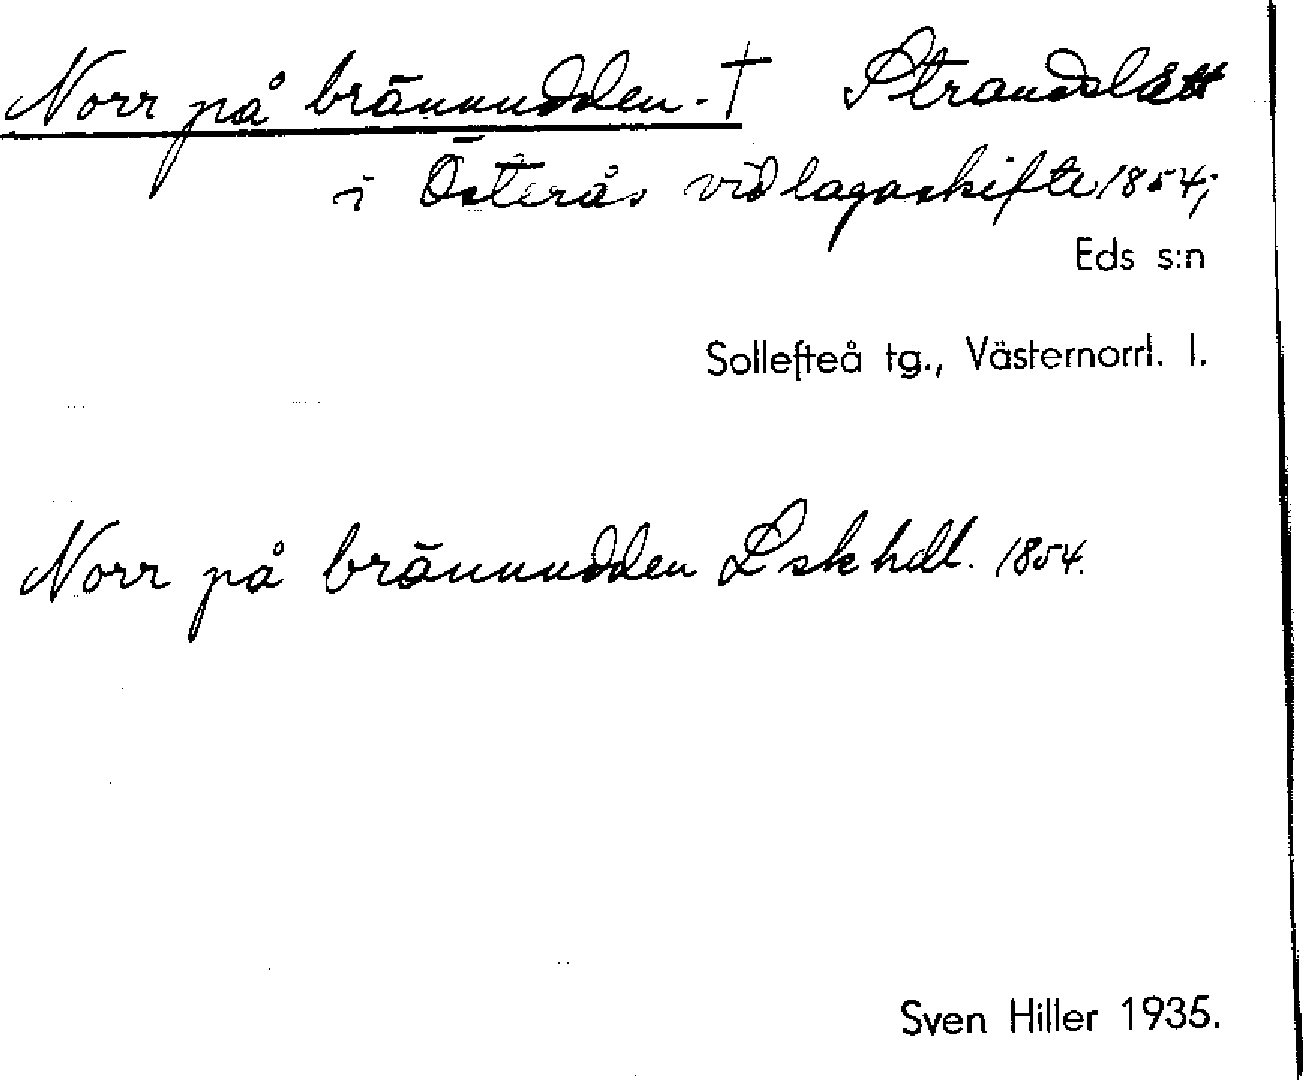 Norr på brännudden. † Strandslått
i Österås vid lagaskifte 1854;
Eds s:n
Sollefteå tg., Västernorrl. l.
Norr på brännudden Lskhdl. 1854.
Sven Hiller 1935.